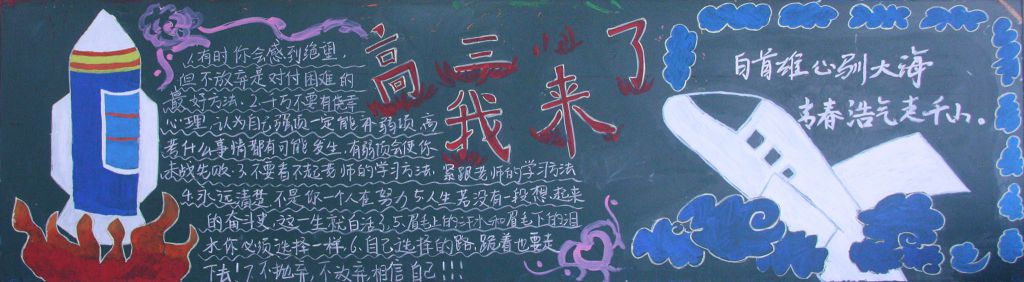 高三我来了
1.有时你会感到绝望,
但不放弃是对付困难的
最好方法.2.千万不要有侥幸
心理,认为自己强项一定能补弱项,高
考什么事情都有可能发生,有弱项会使你
未战先败.3.不要看不起老师的学习方法,紧跟老师的学习方法
4.永远清楚不是你一个人在努力5.人生若没有一段想起来
的奋斗史,这一生就白活了,5.眉毛上的汗水和眉毛下的泪
水你必须选择一样.6.自己选择的路,跪着也要走
下去!7.不抛弃,不放弃,相信自己!!!
自首雄心驯大海
青春浩气走千山。